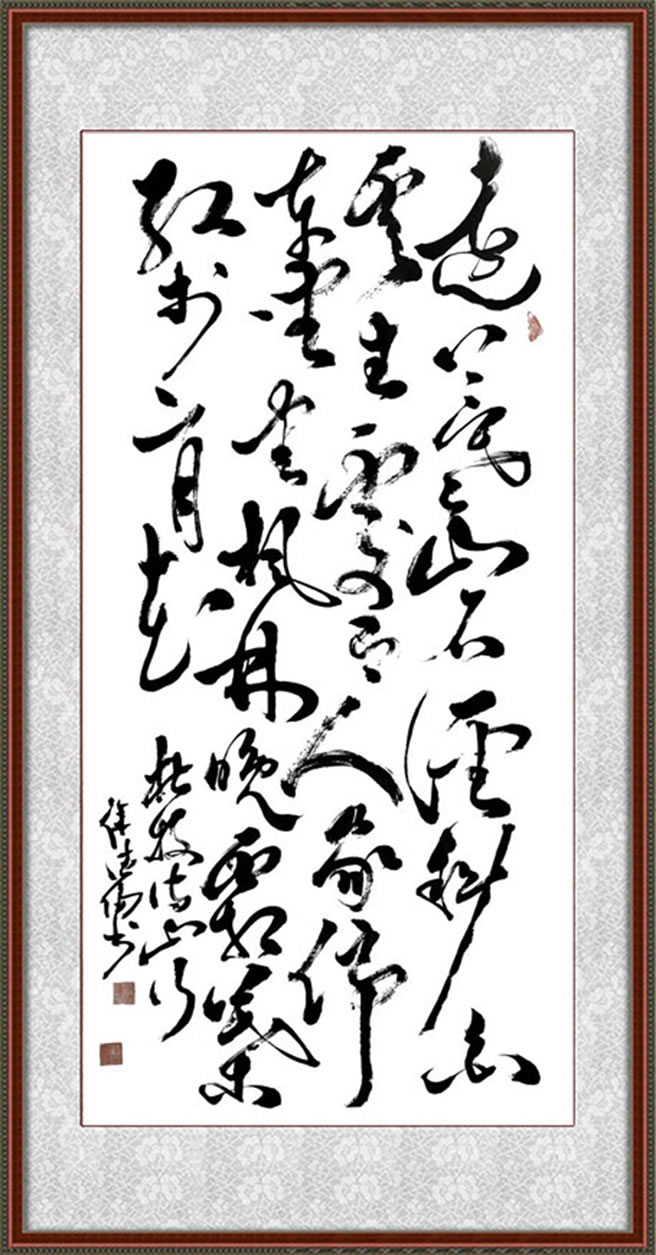 遠上寒山石徑斜白
雲生處有人家停
車坐愛楓林晚霜葉
紅於二月花
杜牧詩山行
徐書